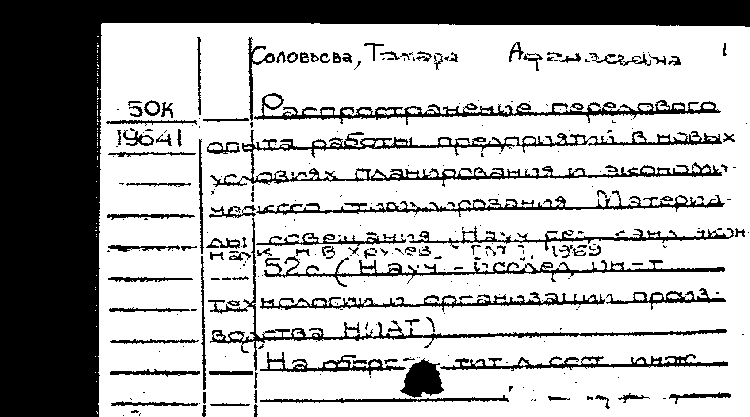 Соловьева, Тамара Афанасьевна 1
50К Распространение передового
19641 опыта работы предприятий в новых
условиях планирования и экономи-
ческого стимулирования Материа-
лы совещания. Науч ред. канд экон
наук Н. В Хрулев [М], 1969
52с (Науч-исслед ин-т
технологии и организации произ-
водства НИАТ)
На обороте тит л сост инж